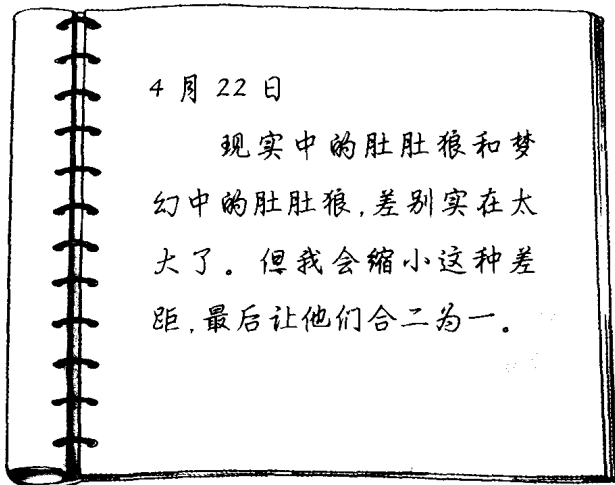 4月22日
现实中的肚肚狼和梦
幻中的肚肚狼,差别实在太
大了。但我会缩小这种差
距,最后让他们合二为一。